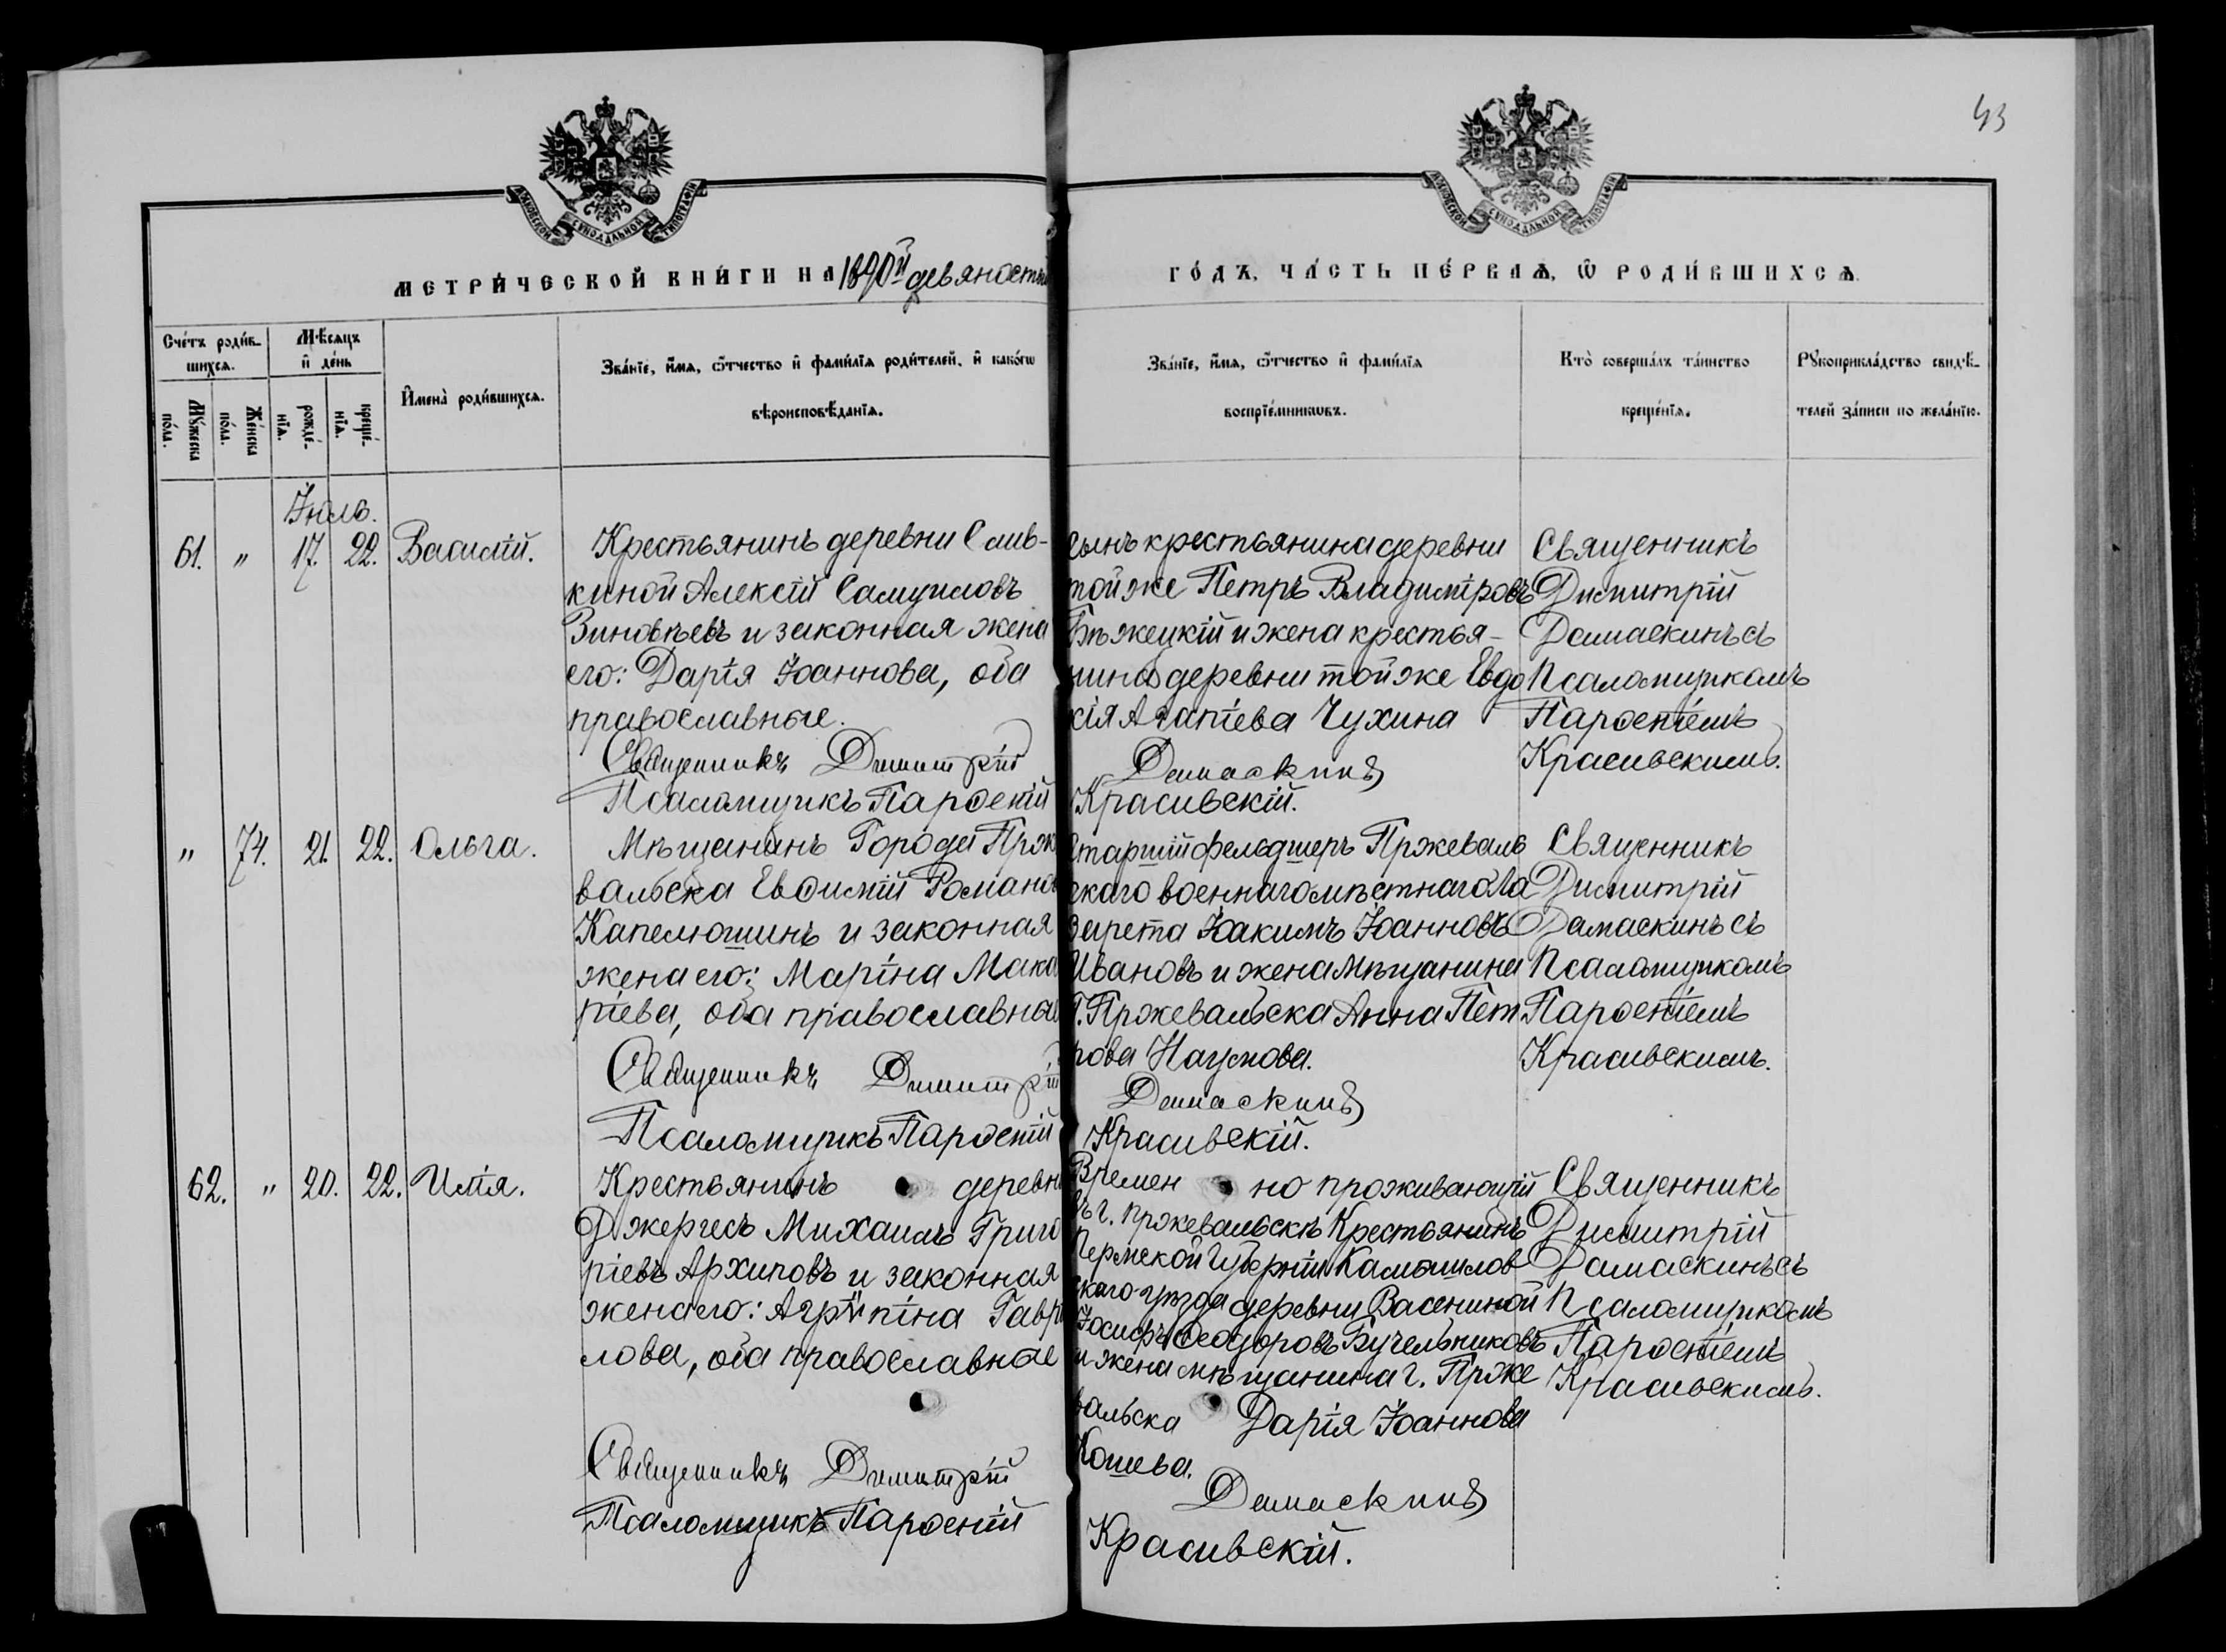 43
МОСКОВСКОЙ СѴНОДАЛЬНОЙ ТИПОГРАФІИ
МОСКОВСКОЙ СѴНОДАЛЬНОЙ ТИПОГРАФІИ
МЕТРИ́ЧЕСКОЙ КНИ́ГИ НА 1890й девяностый
ГО́ДЪ, ЧА́СТЬ ПЕ́РВАѦ, Ѡ҆ РОДИ́ВШИХСѦ.
Сче́тъ роди́в-
шихсѧ.
Мꙋ́жеска по́ла.
Же́нска по́ла.
Мѣ́сѧцъ
и҆ де́нь
рожде́-
нїѧ.
креще́-
нїѧ.
И҆мена̀ роди́вшихсѧ.
Зва́нїе, и҆́мѧ, ѻ҆́тчество и҆ фами́лїѧ роди́телей, и҆ како́гѡ
вѣроисповѣ́данїѧ.
Зва́нїе, и҆́мѧ, ѻ҆́тчество и҆ фами́лїѧ
воспрїе́мникѡвъ.
Кто̀ соверша́лъ та́инство
креще́нїѧ.
Рꙋкоприкла́дство свидѣ́-
телей за́писи по жела́нїю.
Іюль.
61. " 17. 22. Василій.
Крестьянинъ деревни Слив-
киной Алексій Самуиловъ
Зиновьевъ и законная жена
его: Дарія Іоаннова, оба
православные.
Священникъ Димитрій
Псаломщикъ Парѳеній
сынъ крестьянина деревни
той же Петръ Владиміровъ
Бѣжецкій и жена крестья-
нина деревни той же Евдо
кія Агапіева Чухина
Дамаскинъ
Красивскій.
Священникъ
Димитрій
Дамаскинъ съ
Псаломщикомъ
Парѳеніемъ
Красивскимъ.
" 74. 21. 22. Ольга.
Мѣщанинъ Города Прже
вальска Евѳимій Романов
Капелюшинъ и законная
жена его: Маріна Мака
ріева, оба православные
Священникъ Димитрій
Псаломщикъ Парѳеній
Старшій фельдшеръ Пржеваль
скаго военнаго мѣстнаго Ла
зарета Іоакимъ Іоанновъ
Ивановъ и жена мѣщанина
г. Пржевальска Анна Пет
рова Наумова.
Дамаскинъ
Красивскій.
Священникъ
Димитрій
Дамаскинъ съ
Псаломщикомъ
Парѳеніемъ
Красивскимъ.
62. " 20. 22. Илія.
Крестьянинъ деревни
Джергесъ Михаилъ Григо
ріевъ Архиповъ и законная
жена его: Агрипіна Гаври
лова, оба православные
Священникъ Димитрій
Псаломщикъ Парѳеній
Времен но проживающій
въ г. Пржевальскѣ Крестьянинъ
Пермской Губерніи Камышлов
скаго уѣзда деревни Васениной
Іосифъ Ѳеодоровъ Бучельниковъ
и жена мѣщанина г. Прже
вальска Дарія Іоаннова
Кошева.
Дамаскинъ
Красивскій.
Священникъ
Димитрій
Дамаскинъ съ
Псаломщикомъ
Парѳеніемъ
Красивскимъ.